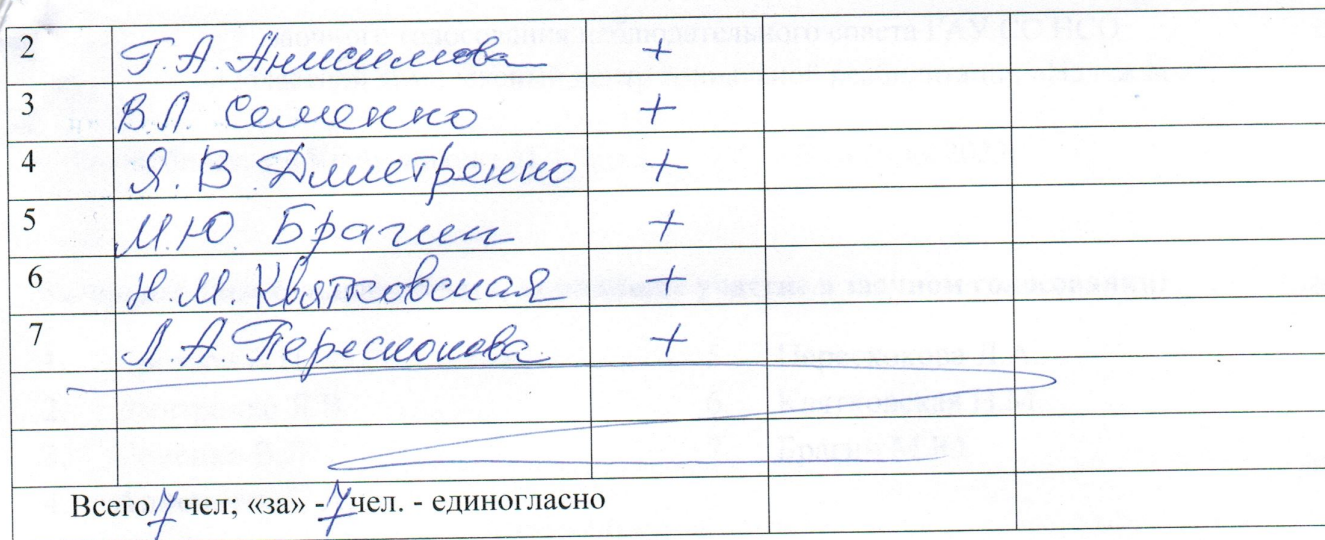 2 Г.А. Анисимова +
3 В.Л. Семенко +
4 Я.В. Дмитренко +
5 М.Ю. Брагин +
6 Н.М. Квятковская +
7 Л.А. Перескокова +
Всего 7 чел; «за» - 7 чел. - единогласно